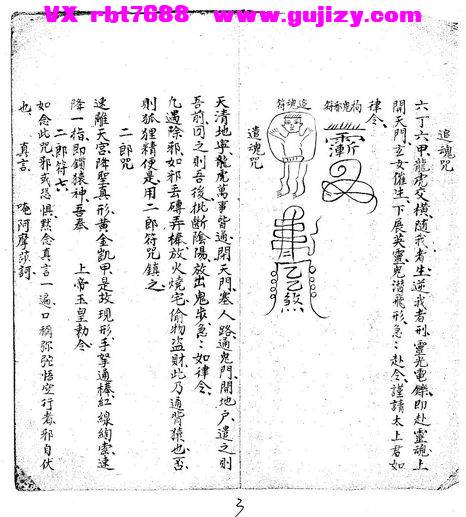 VX rbt7688 www.gujizy.com
追魂咒
六丁六甲、龍虎交横、隨我者生、逆我者刑、靈光電鑠、即赴靈魂、上
開天門、玄女催生、下展英靈、鬼潜飛形、急:赴令、謹請太上君如
律令、
拘鬼㐮符
追魂符
遣魂咒
天清地寧、龍虎萬事皆通、開天門、塞人路、通鬼門、開地戶、遣之則
吾前、回之則吾後、挑斷陰陽、放出鬼步、急:如律令、
凡遇除邪、如邪丢磚弄棒、放火燒宅、偷物盗財、此乃通背猿也、否
則狐狸精便是、用二郎符咒鎮之、
二郎咒
速離天宮、降聖真形、黄金凱甲、是故現形、手拏通棒、紅線綯索、速
降一指、即鎖猿神、吾奉 上帝玉皇勅令
二郎符七、
如念此咒、邪或恐惧、黙念真言一遍、口稱弥陀悟空行者、邪自伏
也、 真言、 唵阿摩莎訶、
3